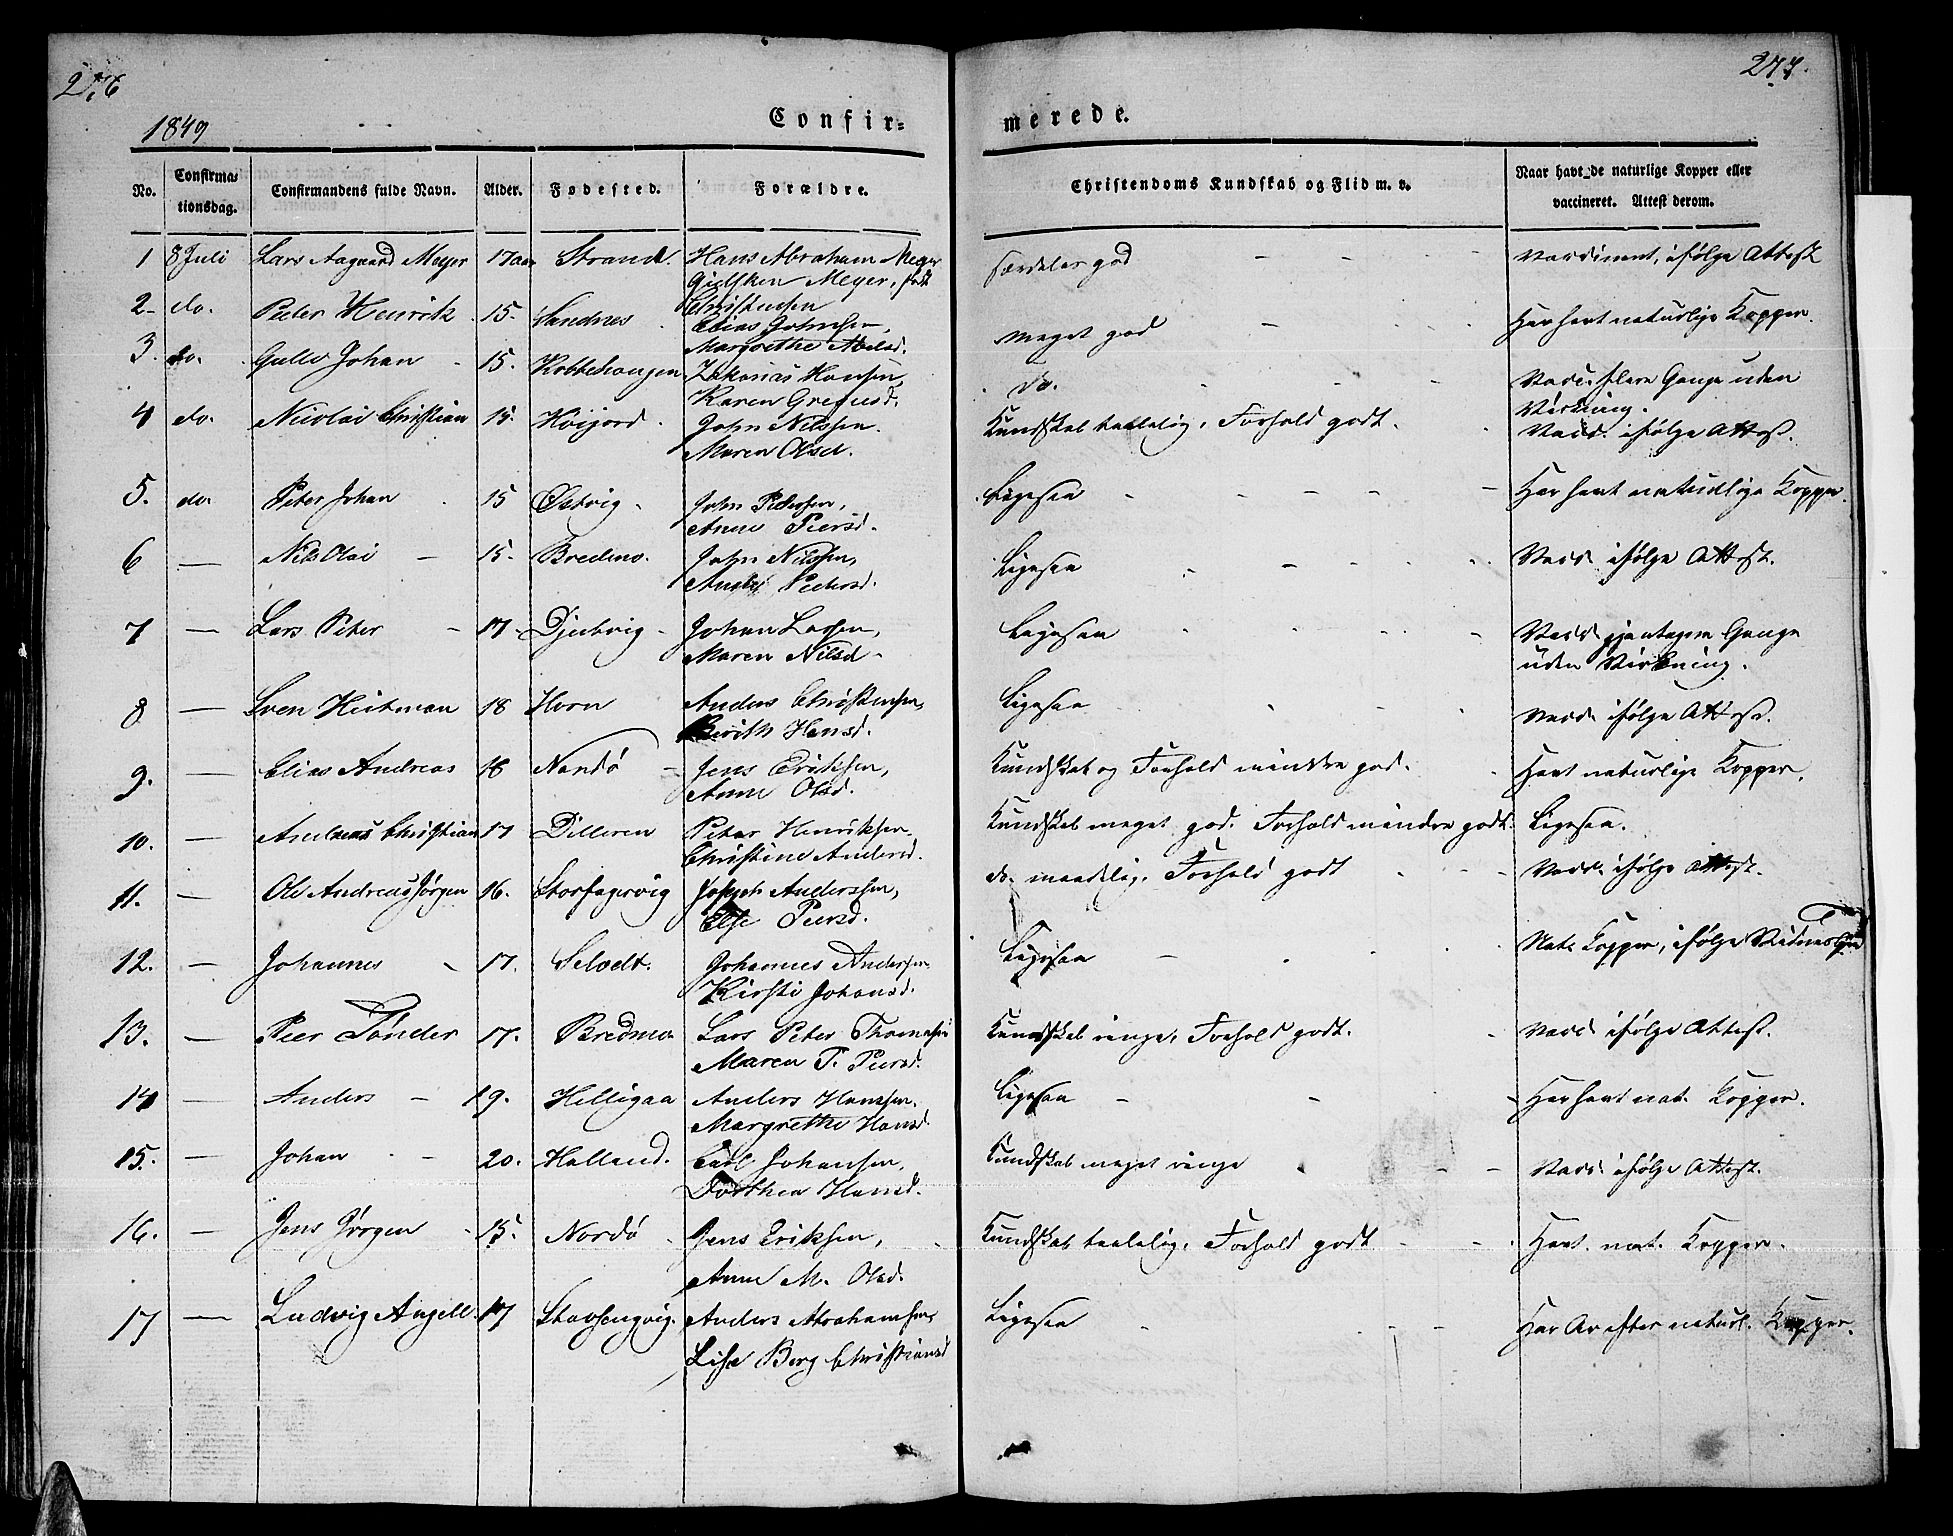 276
277.
1849
Confir=
merede.
No. Confirmationsdag. Confirmandens fulde Navn. Alder. Fødested. Forældre. Christendoms Kundskab og Flid m. v. Naar havt de naturlige Kopper eller vaccineret. Attest derom.
1 8 Juli Lars Aagaard Meyer 17 Strand. Hans Abraham Meyer særdeles god - - - ifølge Attest
Meyer, født
Christensen
2 - do. Peter Henrik 15. Sandnes Elias Johnsen, meget god - Har havt naturlige Kopper.
Margrethe
3. do. Gullo Johan - 15. Zakarias Hansen, do. - - - Vacc. flere Gange uden Virkning.
Karen
4 do. Nicolai Christian 15. Høijord. John Nilssen. Kundskab taalelig, Forhold godt. Vacc. ifølge Attest.
Maren Olsd.
5. do. Peter Johan 15 Østvig - John Pedersen, Ligesaa - - - - - Har havt naturlige Kopper.
Anne Peersd.
6 — Nils Olai - 15. Bredmo. John Nilssen, Ligesaa - - - - Vacc. ifølge Attest.
Pedersd.
7 — Lars Peter - 17 - Djubvig - Johan Larsen, Ligesaa - - - Vacc. gjentagne Gange
Maren Nilsd - uden Virkning.
8 — Sven Heitman 18 Horn Anders Christensen, Ligesaa - - Vacc. ifølge Attest.
Berith Hansd.
9. — Elias Andreas 18 Nordø - Jens Eriksen, Kundskab og Forhold mindre god. Havt naturlige Kopper.
Anne Olsd.
10. — Andreas Christian 17 Dilleren Peter Henriksen. Kundskab meget god. Forhold mindre godt. Ligesaa.
Christine Andersd.
11. — Ole Andreas Jørgen 16. Joseph Anderssen, do. maadelig, Forhold godt - - - Vacc. ifølge Attest.
Else Peersd.
12. — Johannes - 17. Selvedt. Johannes Anderssen. Ligesaa - - - Nat. Kopper, ifølge
Kirsti Johansd.
13. — Peer Tønder 17. Bredmo Lars Peter Thomassen Kundskab ringe, Forhold godt. - Vacc. ifølge Attest.
Maren P. Peersd.
14 — Anders - 19. Helligaa Anders Hanssen. Ligesaa - - - Har havt nat. Kopper.
Margrethe Hansd.
15. — Johan - - 20. Halland. Carl Johansen, Kundskab meget ringe - - Vacc. ifølge Attest.
Dorthea Hansd.
16. — Jens Jørgen - 15. Nordø - Jens Eriksen, Kundskab taalelig, Forhold godt - - Havt. nat. Kopper.
Anne M. Olsd.
17 — Ludvig Angell. 17 Anders Abrahamsen Ligesaa - - - Har Ar efter naturl. Kopper.
Lise Berg Christiansd